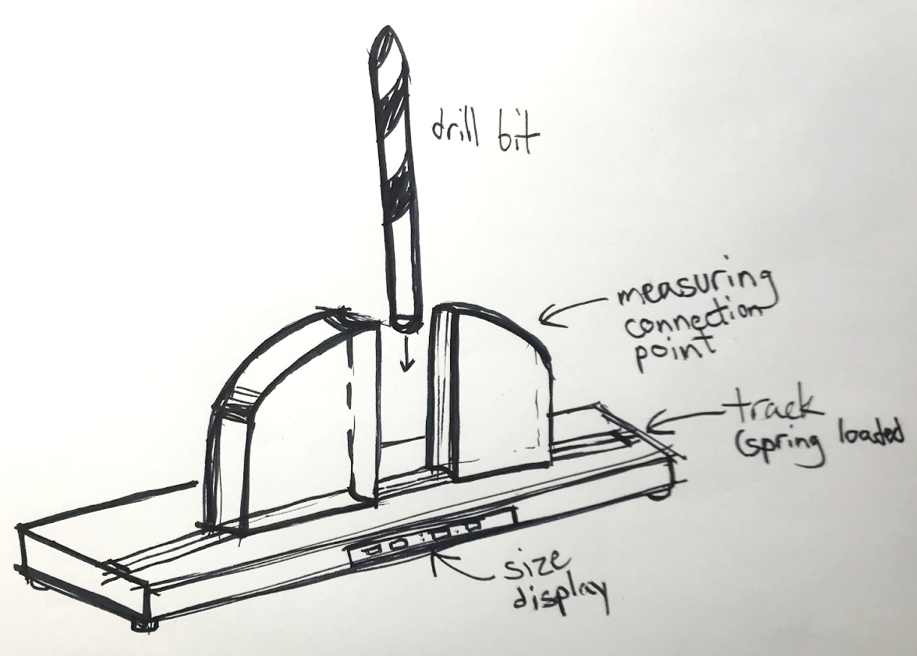 drill bit
measuring
connection
point
track
(spring loaded
size
display